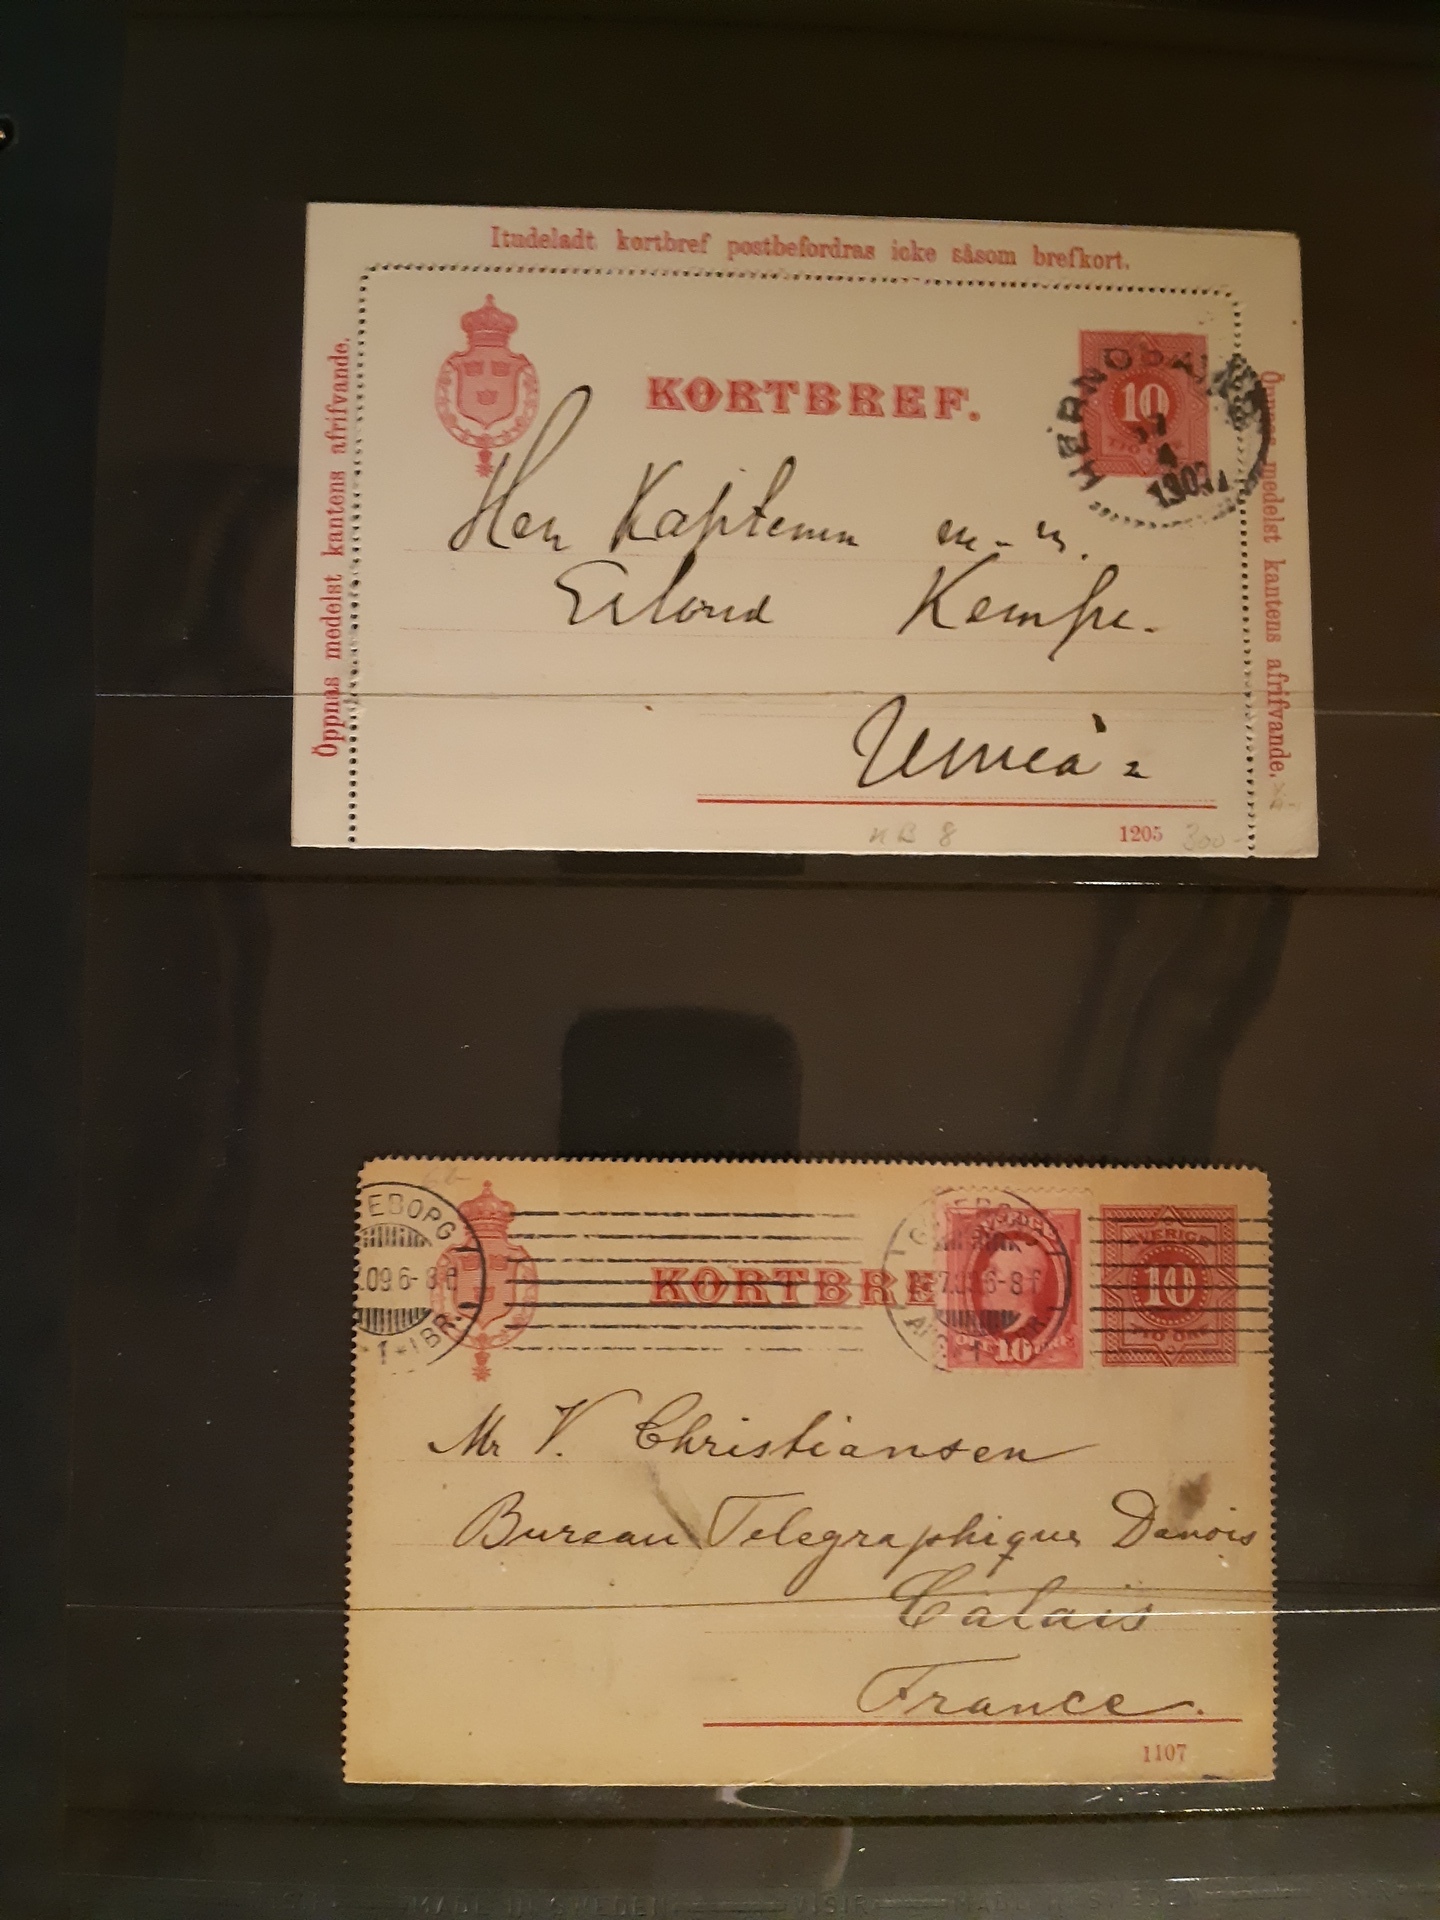 Itudeladt kortbref postbefordras icke såsom brefkort.
Öppnas medelst kantens afrifvande.
KORTBREF.
10
TIO ÖRE
HERNÖSAND
4
Öppnas medelst kantens afrifvande.
Herr Kaptenen m. m.
Erland Kempe.
Umeå
KB 8
1205
300-
EBORG 1
.09 6-8 F
1 * 1 BR.
KORTBREF
10
SVERIGE
10
TIO ÖRE
6-8 F
1
Mr V. Christiansen
Bureau Telegraphique Danois
Calais
France.
1107
MADE IN SWEDEN
VISIR